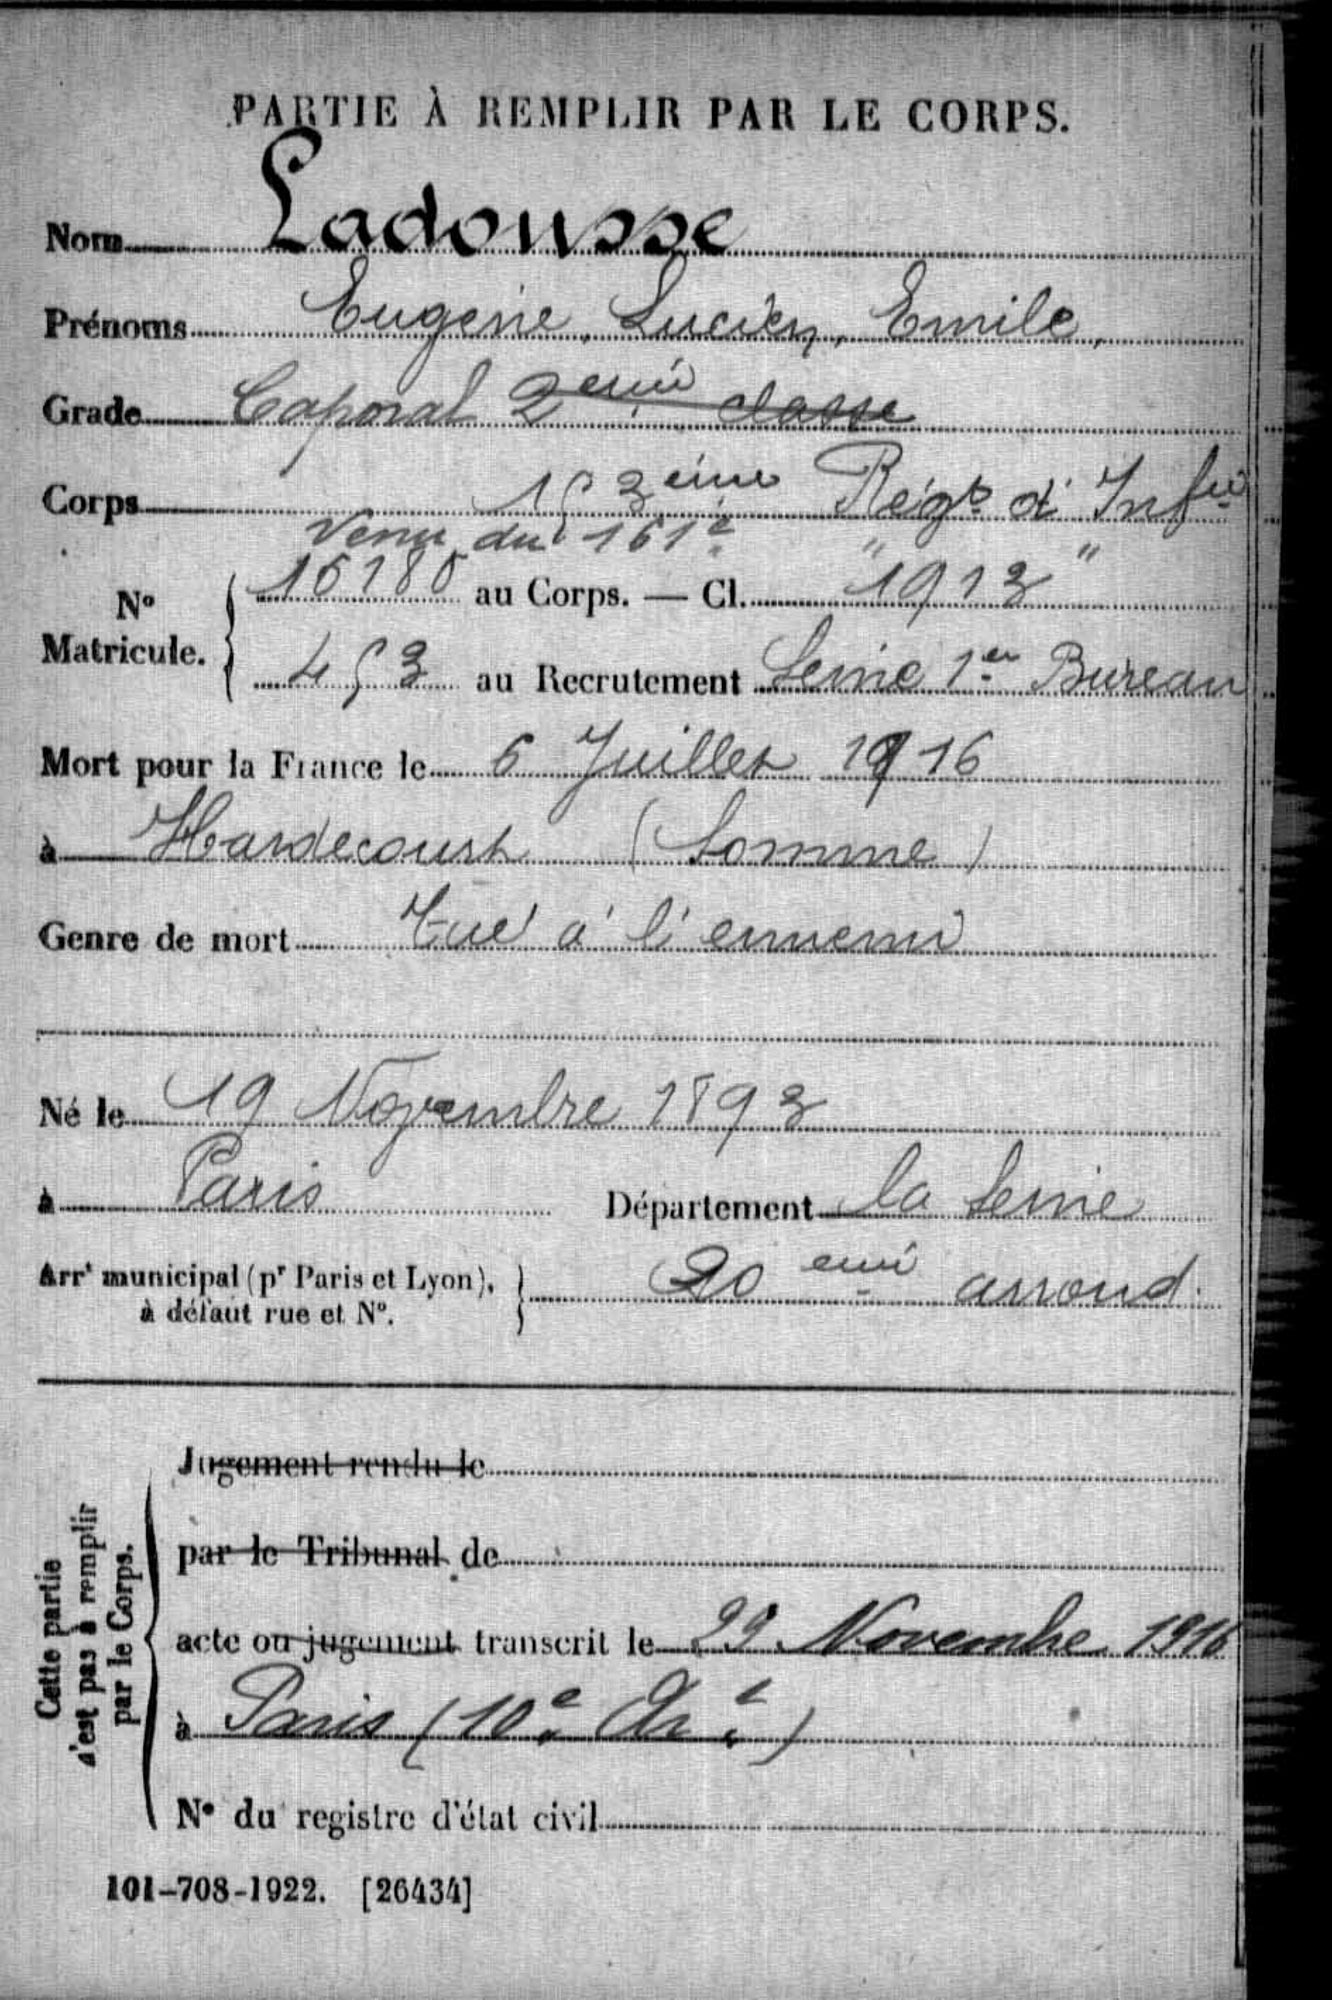 PARTIE À REMPLIR PAR LE CORPS.
Nom Ladousse
Prénoms Eugène, Lucien, Emile,
Grade Caporal 2eme classe
Corps 153eme Régt d'Infie
Venu du 161e " "
No Matricule. 16180 au Corps. — Cl. 1913
453 au Recrutement Seine 1er Bureau
Mort pour la France le 6 Juillet 1916
à Hardecourt (Somme)
Genre de mort Tué à l'ennemi
Né le 19 Novembre 1893
à Paris Département la Seine
Arrt municipal (pr Paris et Lyon), à défaut rue et No. 20eme arrond.
Cette partie n'est pas à remplir par le Corps.
Jugement rendu le
par le Tribunal de
acte ou jugement transcrit le 29 Novembre 1916
à Paris (10e Art)
No du registre d'état civil
101-708-1922. [26434]